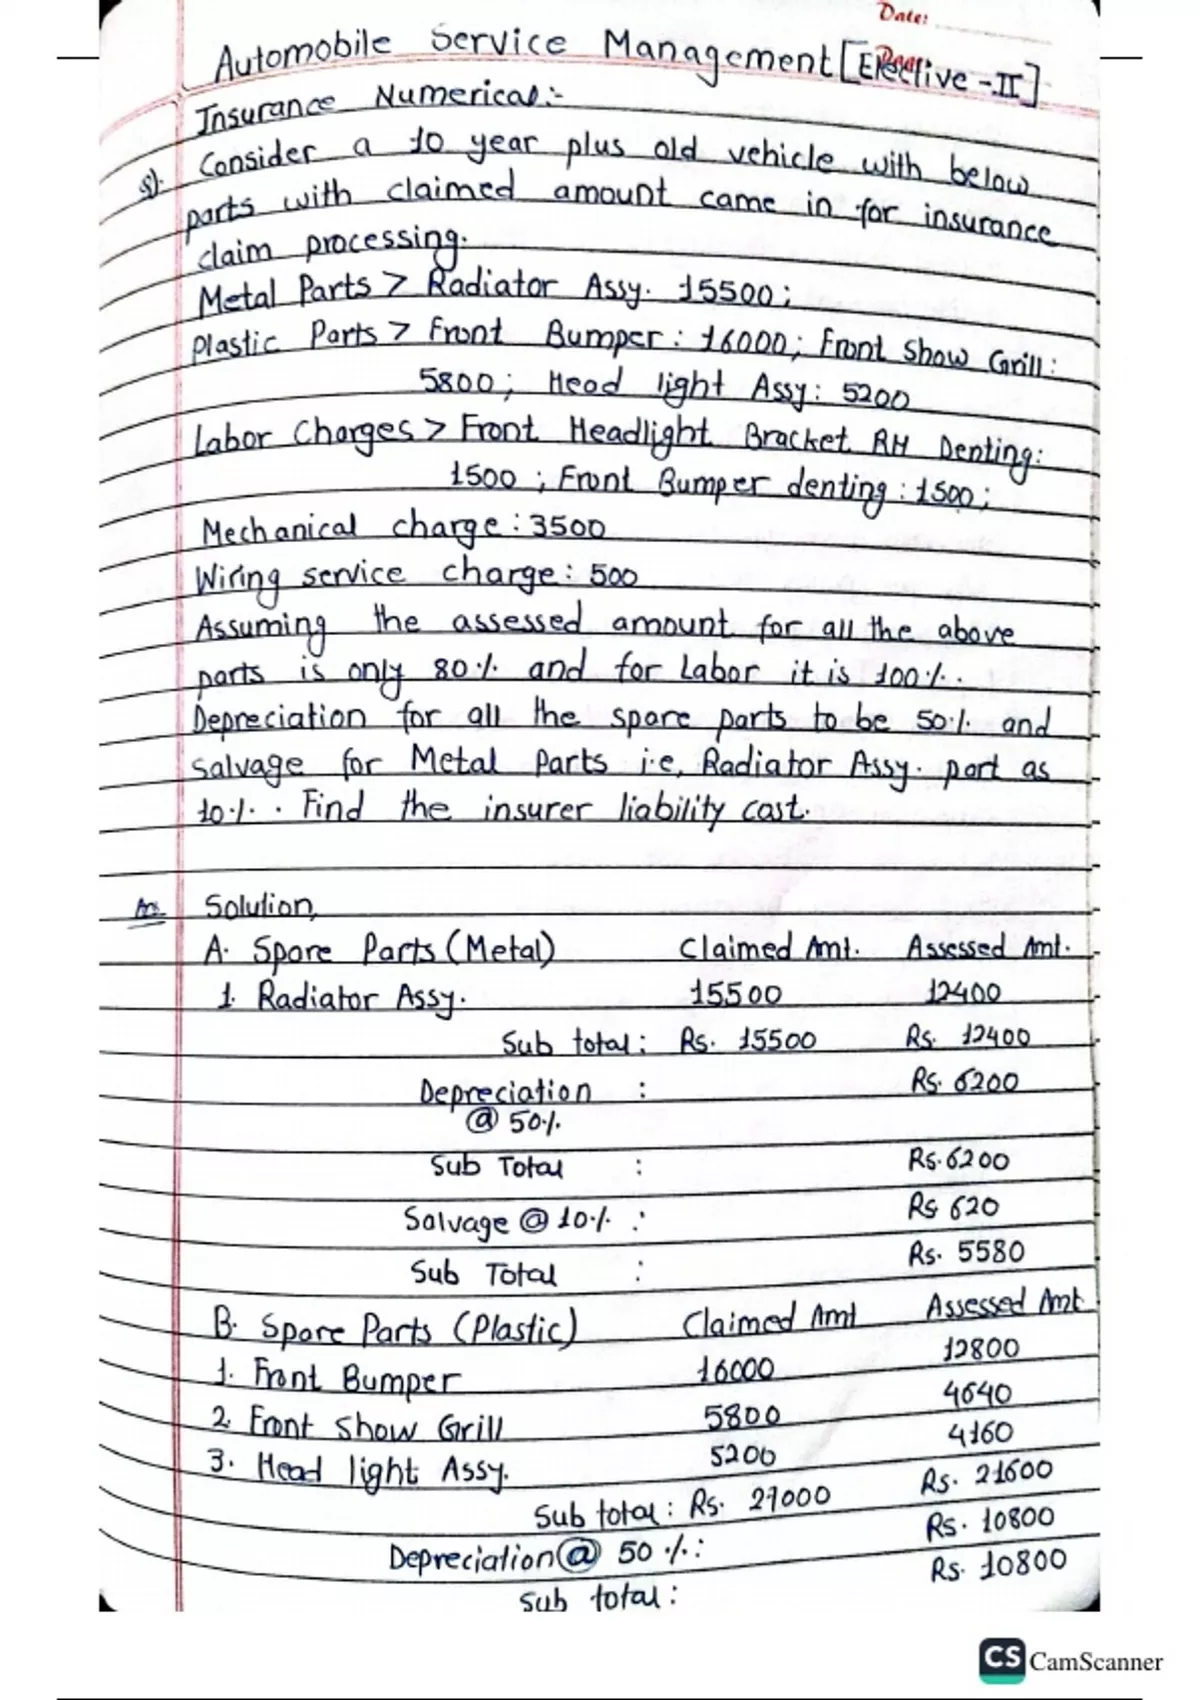 Date:
Automobile Service Management [Elective -II]
Insurance Numerical:-
Q). Consider a 10 year plus old vehicle with below
parts with claimed amount came in for insurance
claim processing.
Metal Parts > Radiator Assy. 15500;
Plastic Parts > Front Bumper: 16000; Front Show Grill:
5800; Head light Assy: 5200
Labor Charges > Front Headlight Bracket RH Denting:
1500; Front Bumper denting: 1500;
Mechanical charge: 3500
Wiring service charge: 500
Assuming the assessed amount for all the above
parts is only 80% and for Labor it is 100%.
Depreciation for all the spare parts to be 50% and
salvage for Metal Parts i.e, Radiator Assy. part as
10%. Find the insurer liability cost.
Ans. Solution,
A. Spare Parts (Metal) Claimed Amt. Assessed Amt.
1. Radiator Assy. 15500 12400
Sub total: Rs. 15500 Rs. 12400
Depreciation : Rs. 6200
@ 50%
Sub Total : Rs. 6200
Salvage @ 10% : Rs 620
Sub Total : Rs. 5580
B. Spare Parts (Plastic) Claimed Amt Assessed Amt
1. Front Bumper 16000 12800
2. Front Show Grill 5800 4640
3. Head light Assy. 5200 4160
Sub total: Rs. 27000 Rs. 21600
Depreciation @ 50%: Rs. 10800
Sub total: Rs. 10800
CS CamScanner